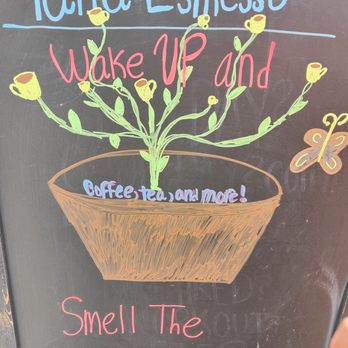 Espresso
Wake UP and
Coffee, tea, and more!
Smell The